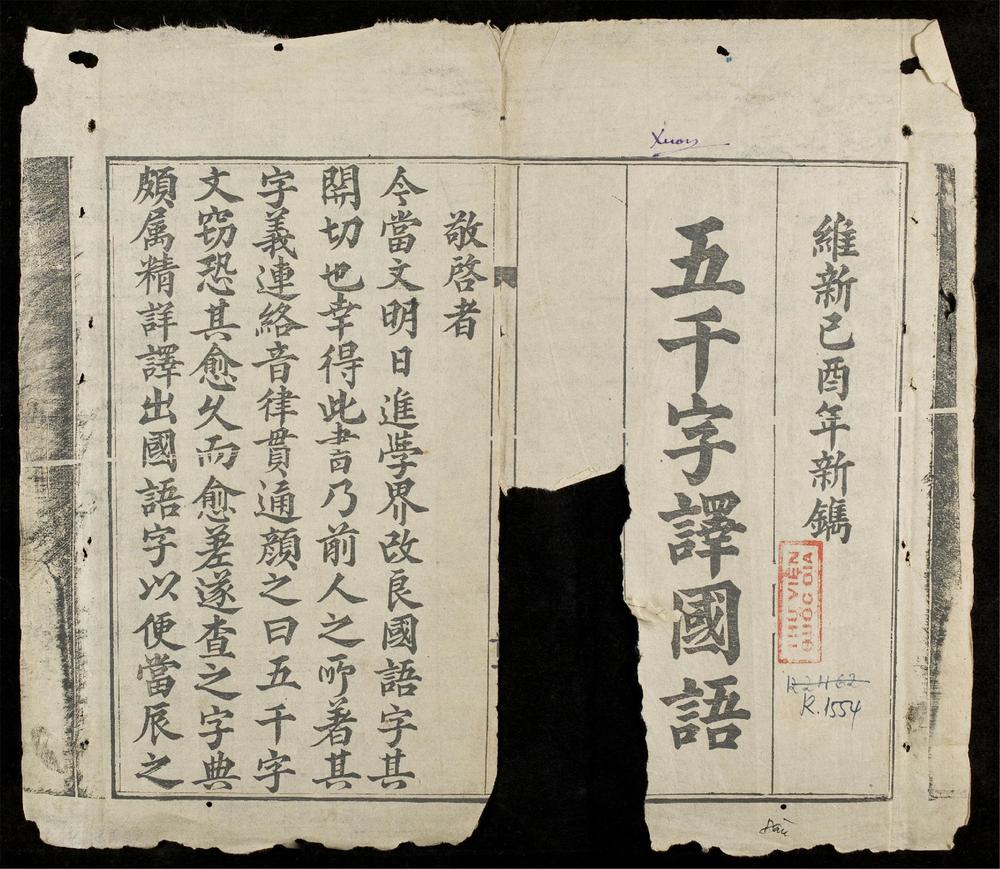 Xuân
維新己酉年新鐫
五千字譯國語
THƯ VIỆN
QUỐC GIA
R.1554
敬啓者
今當文明日進學界改良國語字其
開切也幸得此書乃前人之所著其
字義連絡音律貫通顏之曰五千字
文窃恐其愈久而愈差遂查之字典
頗属精詳譯出國語字以便當辰之